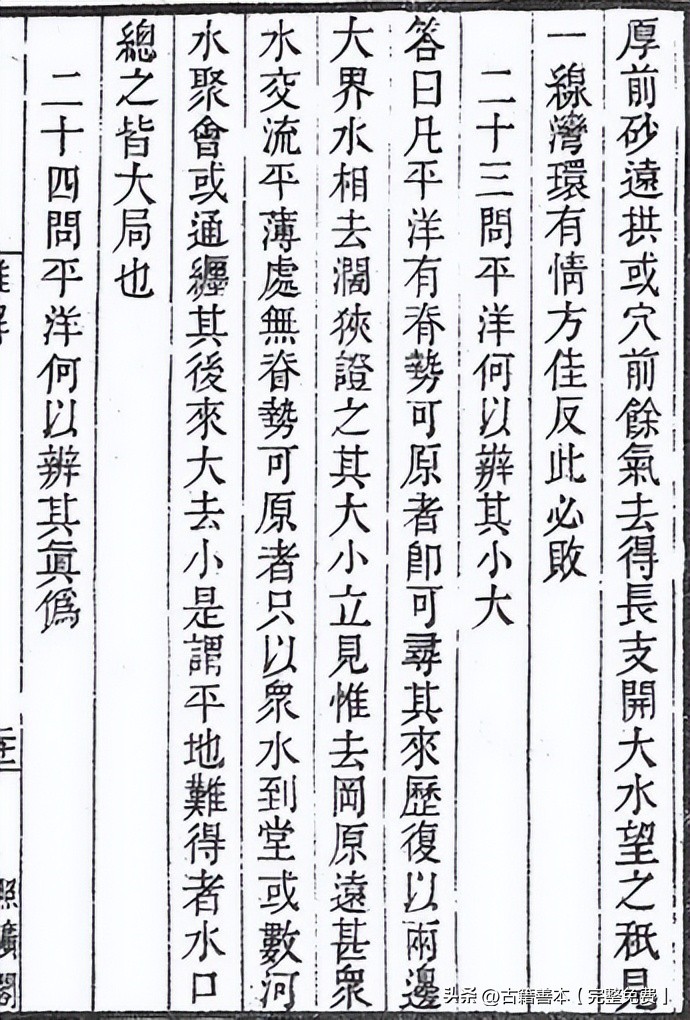 厚前砂遠拱或穴前餘氣去得長支開大水望之秖見
一線灣環有情方佳反此必敗
二十三問平洋何以辨其小大
答曰凡平洋有脊勢可原者卽可尋其來歷復以兩邊
大界水相去濶狹證之其大小立見惟去岡原遠甚衆
水交流平薄處無脊勢可原者只以衆水到堂或數河
水聚會或通纒其後來大去小是謂平地難得者水口
總之皆大局也
二十四問平洋何以辨其眞僞
照曠閣
头条 @古籍善本（完整免费）